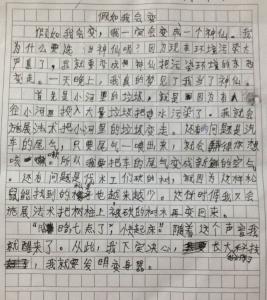 假如我会变
假如我会变，我一定会变成一个神仙。我
为什么要选 当神仙呢？因为现在环境污染太
严重了，我就要变成神仙把污染环境的东西
变走。一天晚上，我真的梦见了我当了神仙。
首先是小河里的垃圾，就是因为有人
在小河里投入大量垃圾把水污染了。我就会
施展法术把小河里的垃圾变走。还有问题是汽
车的尾气，只要尾气一喷出来，就会
所以我要把车的尾气变成新鲜的空气
还有问题是伐木工们砍的树木，就因为这样松
鼠能找到的 也越来越少。这你时候我又会
施展法术把树桩上被砍的树木再变回来。
七点了，快起床”随着这个声音我
就醒来了。从此，我下定决心， 长大
，我就要发明变身器。